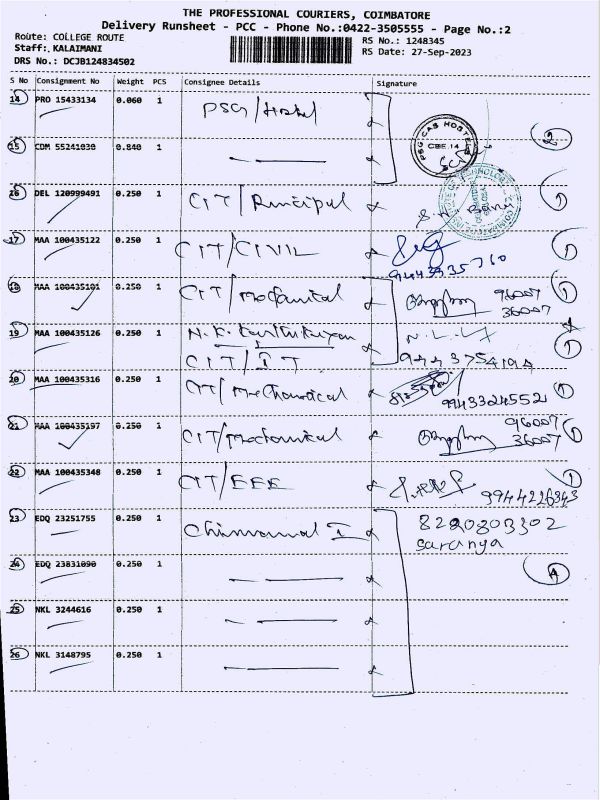 THE PROFESSIONAL COURIERS, COIMBATORE
Delivery Runsheet - PCC - Phone No.:0422-3505555 - Page No.:2
Route: COLLEGE ROUTE RS No.: 1248345
Staff: KALAIMANI RS Date: 27-Sep-2023
DRS No.: DCJB124834502
S No Consignment No Weight PCS Consignee Details Signature
14 PRO 15433134 0.060 1 PSG/Hostel
PSG CAS HOSTELS CBE.14
2
15 CDM 55241030 0.840 1
16 DEL 120999491 0.250 1 CIT/Principal 1
17 MAA 100435122 0.250 1 CIT/CIVIL 1
18 MAA 100435101 0.250 1 CIT/Mechanical 96007 1
36007
19 MAA 100435126 0.250 1 N.K. 1
CIT/IT
20 MAA 100435316 0.250 1 CIT/Mechanical 9943324552 1
21 MAA 100435197 0.250 1 CIT/Mechanical 96007 1
36007
22 MAA 100435348 0.250 1 CIT/EEE 1
23 EDQ 23251755 0.250 1 8220803302
Saranya
24 EDQ 23831090 0.250 1 4
25 NKL 3244616 0.250 1
26 NKL 3148795 0.250 1